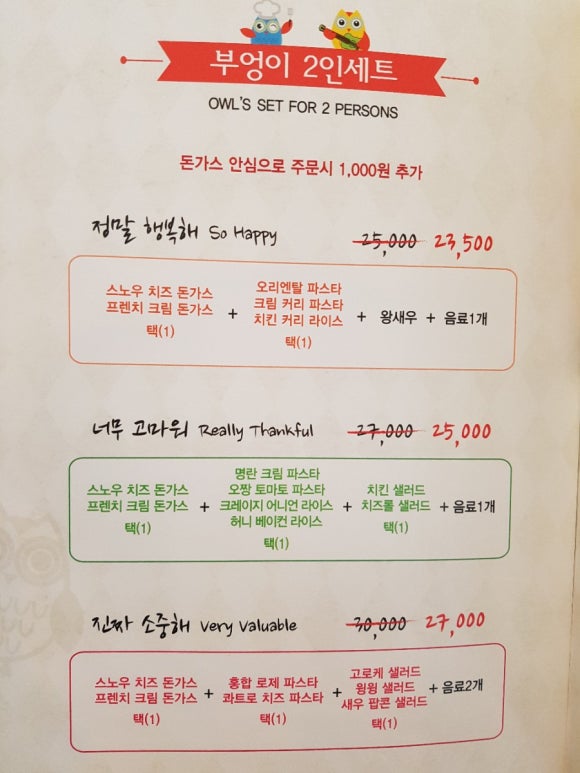 부엉이 2인세트
OWL'S SET FOR 2 PERSONS
돈가스 안심으로 주문시 1,000원 추가
정말 행복해 So Happy 25,000 23,500
스노우 치즈 돈가스
프렌치 크림 돈가스
택(1)
+
오리엔탈 파스타
크림 커리 파스타
치킨 커리 라이스
택(1)
+ 왕새우 + 음료1개
너무 고마워 Really Thankful 27,000 25,000
스노우 치즈 돈가스
프렌치 크림 돈가스
택(1)
+
명란 크림 파스타
오짱 토마토 파스타
크레이지 어니언 라이스
허니 베이컨 라이스
택(1)
+
치킨 샐러드
치즈롤 샐러드
택(1)
+ 음료1개
진짜 소중해 Very Valuable 30,000 27,000
스노우 치즈 돈가스
프렌치 크림 돈가스
택(1)
+
홍합 로제 파스타
콰트로 치즈 파스타
택(1)
+
고로케 샐러드
윙윙 샐러드
새우 팝콘 샐러드
택(1)
+ 음료2개